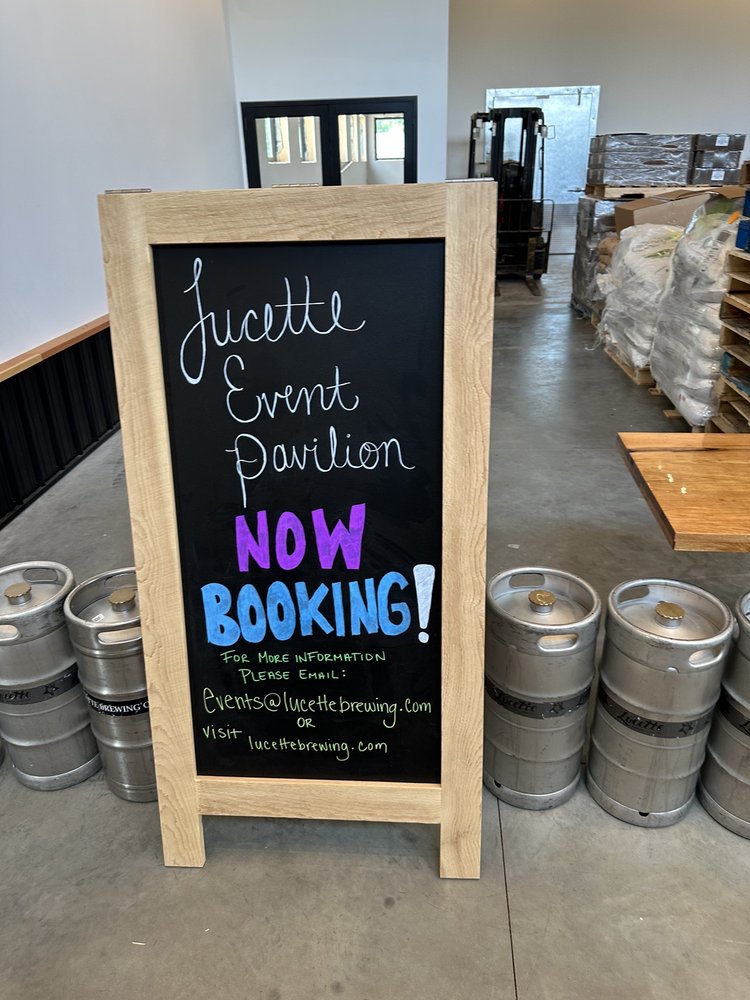 Lucette
Event
Pavilion
NOW
BOOKING!
FOR MORE INFORMATION
PLEASE EMAIL:
events@lucettebrewing.com
OR
visit lucettebrewing.com
Lucette
TE BREWING CO
Lucette
Lucette